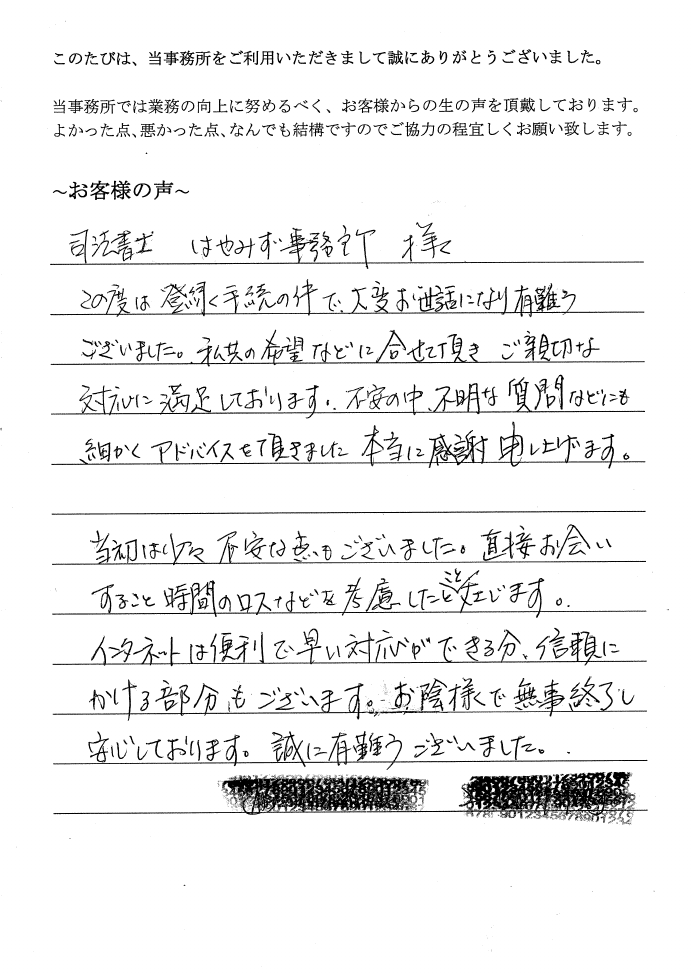 このたびは、当事務所をご利用いただきまして誠にありがとうございました。
当事務所では業務の向上に努めるべく、お客様からの生の声を頂戴しております。
よかった点、悪かった点、なんでも結構ですのでご協力の程宜しくお願い致します。
~お客様の声~
司法書士 はやみず事務所 様
この度は登録手続の件で、大変お世話になり有難う
ございました。私共の希望などに合せて頂き ご親切な
対応に満足しております。不安の中、不明な質問などにも
細かくアドバイスを頂きました 本当に感謝申し上げます。
当初は少々不安な点もございました。直接お会い
すること時間のロスなどを考慮したこと 感じます。
インターネットは便利で早い対応ができる分、信頼に
かける部分もございます。お陰様で無事終了し
安心しております。誠に有難うございました。